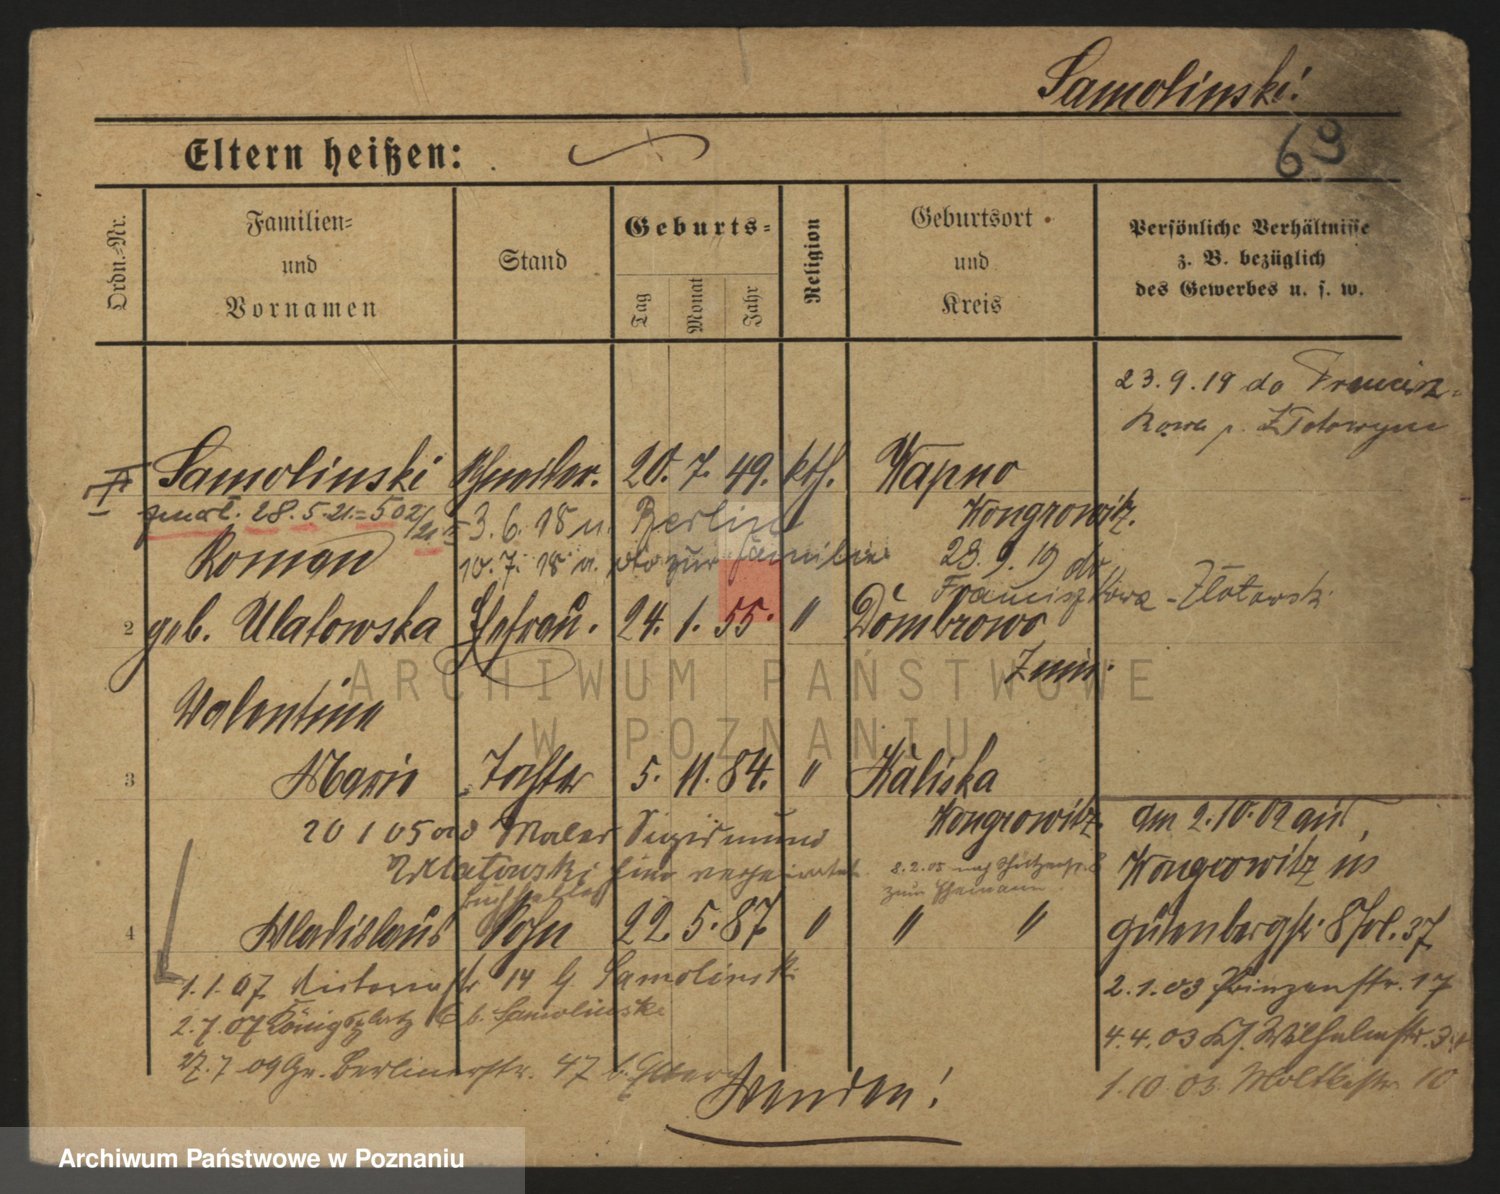 Samolinski!
69
Eltern heißen:
Ordn.-Nr.
Familien-
und
Vornamen
Stand
Geburts-
Tag
Monat
Jahr
Religion
Geburtsort
und
Kreis
Persönliche Verhältnisse
z. B. bezüglich
des Gewerbes u. s. w.
23.9.19 do Francisz-
kowa p. Złotowym
Samolinski Schneider. 20. 7. 49. kth. Wapno
zmarł. 28.5.21 = 502/21 3.6.18 n. Berlin Wongrowitz.
Roman 10.7.18 v. dto zur Familie 23.9.19 do
Franciszkowa - Zlotowski
2 geb. Ulatowska Ehefrau. 24. 1. 55. " Dombrowo
Znin.
Valentine
3 Marie Tochter 5. 11. 84. " Kaliska
20 1 05 Maler Sigismund Wongrowitz. am 2.10.02 aus
Ulatowski hier verheiratet 8.2.05 nach Schützenstr. 8 Wongrowitz in
zum Ehemann.
4 Wladislaus Sohn 22. 5. 87 " " " Gutenbergstr. 8 Vol. 37
1.1.07 Victoriastr 14 b Samolinski 2.1.03 Prinzenstr. 17
2.7.07 Königsplatz 6 b. Samolinski 4.4.03 Wilhelmstr.
27.7 09 Gr. Berlinerstr. 47 b. 1.10 03. Moltkestr. 10
Wenden!
ARCHIWUM PAŃSTWOWE
W POZNANIU
Archiwum Państwowe w Poznaniu